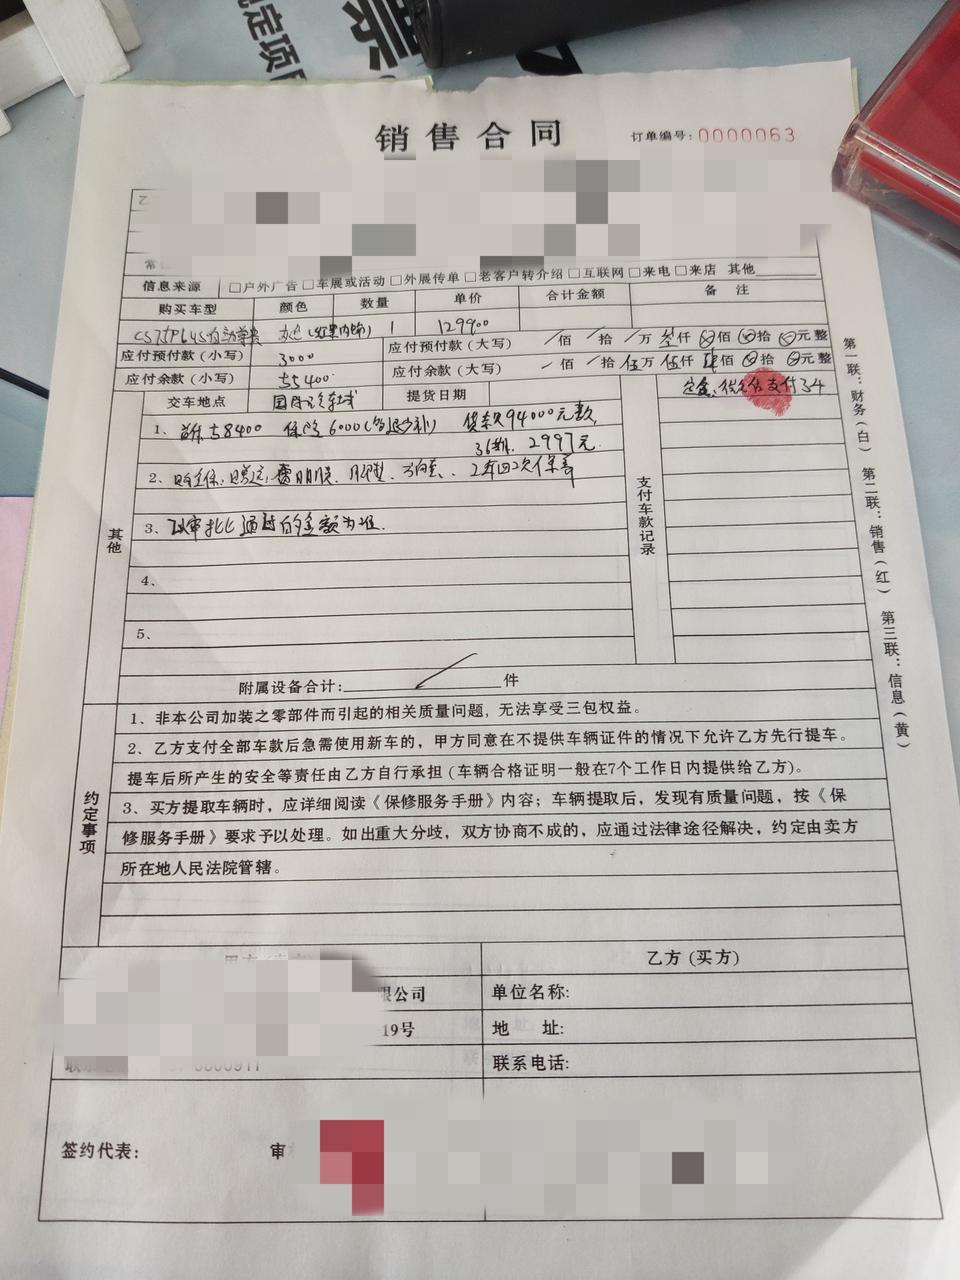 票
定项目
销售合同
订单编号:0000063
乙
常
信息来源 □户外广告 □车展或活动 □外展传单 □老客户转介绍 □互联网 □来电 □来店 其他
购买车型 颜色 数量 单价 合计金额 备注
1 129900
应付预付款(小写) 3000 应付预付款(大写) /佰 /拾 /万 叁仟 0佰 0拾 0元整
应付余款(小写) 55400 应付余款(大写) /佰 /拾 伍万 伍仟 肆佰 0拾 0元整
交车地点 国际汽车城 提货日期
定金:优先付支付34
1、首付58400 保险6000(多退少补) 贷款94000元整,
36期 2997元
2、全保,
2年四次保养
3、以审批通过的金额为准.
4、
5、
其他
支付车款记录
附属设备合计: 件
约定事项
1、非本公司加装之零部件而引起的相关质量问题, 无法享受三包权益。
2、乙方支付全部车款后急需使用新车的，甲方同意在不提供车辆证件的情况下允许乙方先行提车。
提车后所产生的安全等责任由乙方自行承担 (车辆合格证明一般在7个工作日内提供给乙方)。
3、买方提取车辆时，应详细阅读《保修服务手册》内容；车辆提取后，发现有质量问题，按《保
修服务手册》要求予以处理。如出重大分歧，双方协商不成的，应通过法律途径解决，约定由卖方
所在地人民法院管辖。
乙方 (买方)
限公司 单位名称:
19号 地 址:
联系电话:
签约代表: 审
第一联：财务(白) 第二联：销售(红) 第三联：信息(黄)